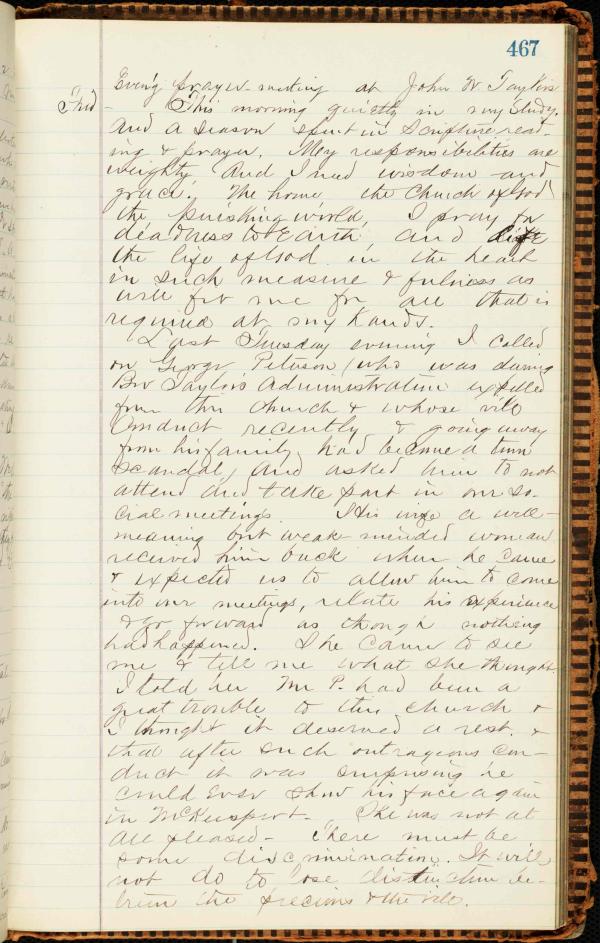 467
Even'g prayer-meeting at John W. Taylors
Frid - This morning quietly in my study.
And a season spent in Scripture read-
ing & prayer. My responsibilities are
weighty And I need wisdom and
grace. The home, the Church of God
the perishing world, I pray for
deadness to Earth and life
the life of God in the heart
in such measure & fulness as
will fit me for all that is
required at my hands.
Last Tuesday evening I called
on George Peterson (who was during
Bro Taylor's Administration expelled
from the church & whose vile
Conduct recently & going away
from his family had become a town
scandal) and asked him to not
attend and take part in our So-
cial meetings. His wife a well-
meaning but weak minded woman
received him back when he came
& expected us to allow him to come
into our meetings, relate his experience
& go forward as though nothing
had happened. She came to see
me & tell me what she thought.
I told her Mr P. had been a
great trouble to this church &
I thought it deserved a rest. &
that after such outrageous con-
duct it was surprising he
could Ever show his face again
in McKeesport. She was not at
all pleased - There must be
some discrimination. It will
not do to lose distinction be-
tween the precious & the vile.